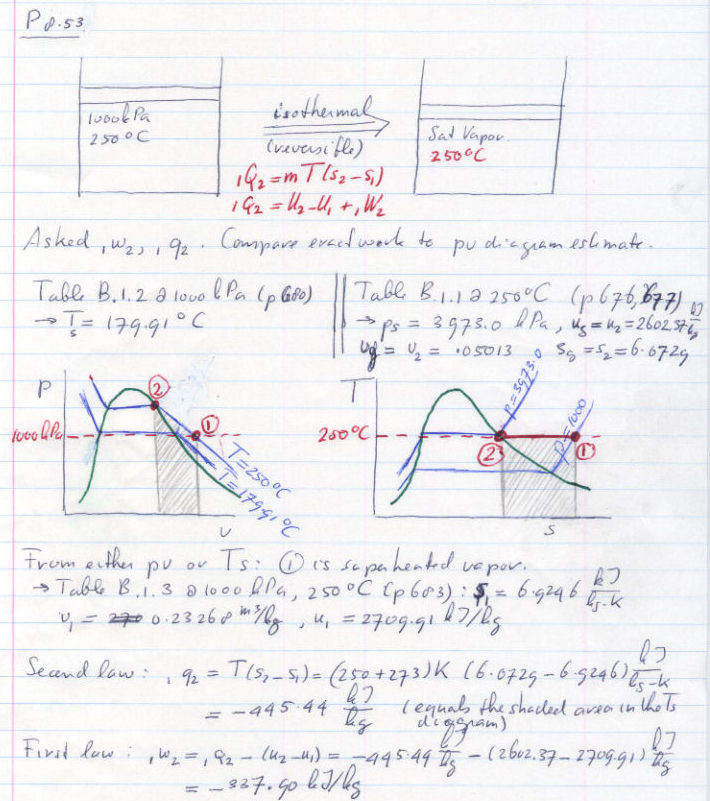 P 8.53
1000 kPa
250°C
isothermal
(reversible)
Sat Vapor
250°C
₁Q₂ = m T(s₂-s₁)
₁Q₂ = U₂-U₁ + ₁W₂
Asked ₁w₂, ₁q₂. Compare exact work to pv diagram estimate.
Table B.1.2 @ 1000 kPa (p 680)
→ Tₛ = 179.91°C
Table B.1.1 @ 250°C (p 676, 677)
→ pₛ = 3973.0 kPa, u_g = u₂ = 2602.37 kJ/kg
v_g = v₂ = .05013 s_g = s₂ = 6.0729
P
②
①
1000 kPa
T=250°C
T=179.91°C
v
T
p=3973.0
p=1000
250°C
②
①
s
From either pv or Ts: ① is superheated vapor.
→ Table B.1.3 @ 1000 kPa, 250°C (p 683): s₁ = 6.9246 kJ/kg-K
v₁ = 0.23268 m³/kg, u₁ = 2709.91 kJ/kg
Second law: ₁q₂ = T(s₂-s₁) = (250+273)K (6.0729-6.9246) kJ/kg-K
= -445.44 kJ/kg (equals the shaded area in the Ts
diagram)
First law: ₁w₂ = ₁q₂ - (u₂-u₁) = -445.44 kJ/kg - (2602.37-2709.91) kJ/kg
= -337.90 kJ/kg